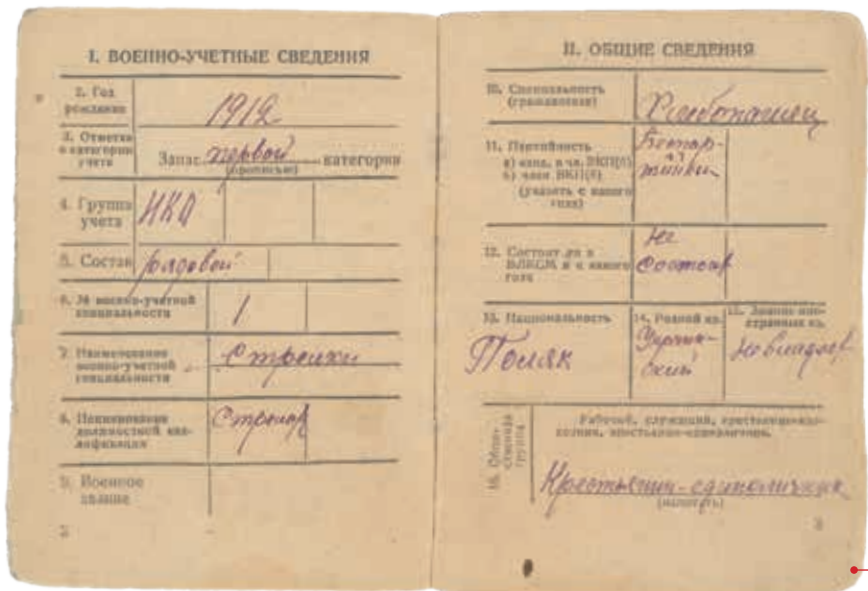 I. ВОЕННО-УЧЕТНЫЕ СВЕДЕНИЯ
2. Год
рождения
1912
3. Отметка
о категории
учета
Запас первой категории
(прописью)
4. Группа
учета
НКО
5. Состав
рядовой
6. № военно-учетной
специальности
1
7. Наименование
военно-учетной
специальности
Стрелки
8. Наименование
должностной ква-
лификации
9. Военное
звание
2
II. ОБЩИЕ СВЕДЕНИЯ
10. Специальность
(гражданская)
Хлебопашец
11. Партийность
а) канд. в чл. ВКП(б)
б) член ВКП(б)
(указать с какого
года)
Беспар-
тийный
12. Состоит ли в
ВЛКСМ и с какого
года
Не
13. Национальность
Поляк
14. Родной яз.
15. Знание ино-
странных яз.
16. Обще-
ственная
группа
Рабочий, служащий, крестьянин-кол-
хозник, крестьянин-единоличник
Крестьянин-единоличник
(написать)
3